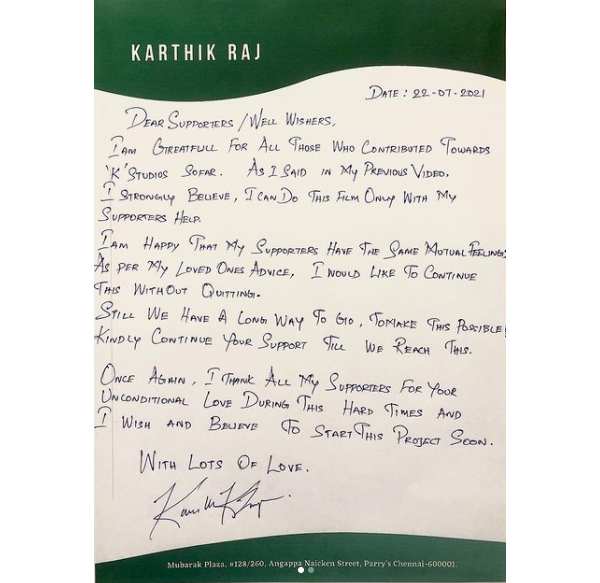 KARTHIK RAJ
DATE : 22-07-2021
DEAR SUPPORTERS / WELL WISHERS,
I AM GREATFULL FOR ALL THOSE WHO CONTRIBUTED TOWARDS
'K' STUDIOS SOFAR. AS I SAID IN MY PREVIOUS VIDEO.
I STRONGLY BELIEVE, I CAN DO THIS FILM ONLY WITH MY
SUPPORTERS HELP.
I AM HAPPY THAT MY SUPPORTERS HAVE THE SAME MUTUAL FEELINGS
AS PER MY LOVED ONES ADVICE, I WOULD LIKE TO CONTINUE
THIS WITHOUT QUITTING.
STILL WE HAVE A LONG WAY TO GO, TO MAKE THIS POSSIBLE
KINDLY CONTINUE YOUR SUPPORT TILL WE REACH THIS.
ONCE AGAIN, I THANK ALL MY SUPPORTERS FOR YOUR
UNCONDITIONAL LOVE DURING THIS HARD TIMES AND
I WISH AND BELIEVE TO START THIS PROJECT SOON.
WITH LOTS OF LOVE.
Mubarak Plaza, #128/260, Angappa Naicken Street, Parry's Chennai-600001.